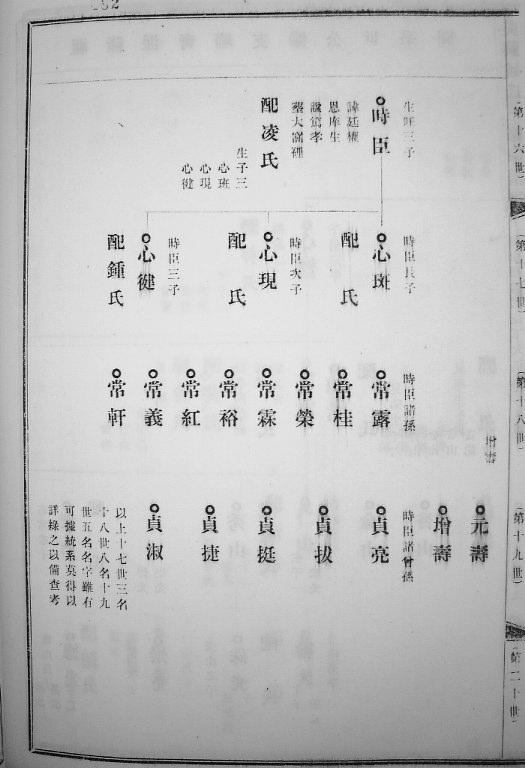 第十六世
第十七世
第十八世
第十九世
第二十世
生旺三子
時臣
諱廷權
恩庠生
諡篤孝
葬大窩裡
配凌氏
生子三
心班
心現
心健
時臣長子
心班
配 氏
時臣次子
心現
配 氏
時臣三子
心健
配鍾氏
時臣諸孫
常露
常桂
常榮
常霖
常裕
常紅
常義
常軒
增壽
元壽
增壽
時臣諸曾孫
貞亮
貞拔
貞挺
貞捷
貞淑
以上十七世三名
十八世八名十九
世五名名字雖有
可據統系莫得以
詳錄之以備查考